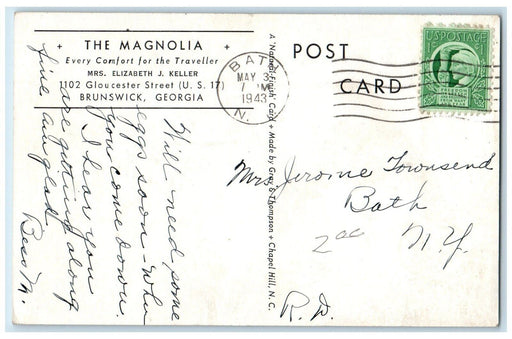 THE MAGNOLIA
Every Comfort for the Traveller
MRS. ELIZABETH J. KELLER
1102 Gloucester Street (U. S. 17)
BRUNSWICK, GEORGIA
Will need some
eggs soon - when
you come down.
I hear you
are getting along
fine am glad
Bess M.
A "Natural-Finish" Card • Made by Graycraft & Thompson • Chapel Hill, N. C.
BATH
MAY 3
PM
1943
N.
POST
CARD
U.S. POSTAGE
1¢
Mrs Jerome Townsend
Bath
N.Y.
R.D.